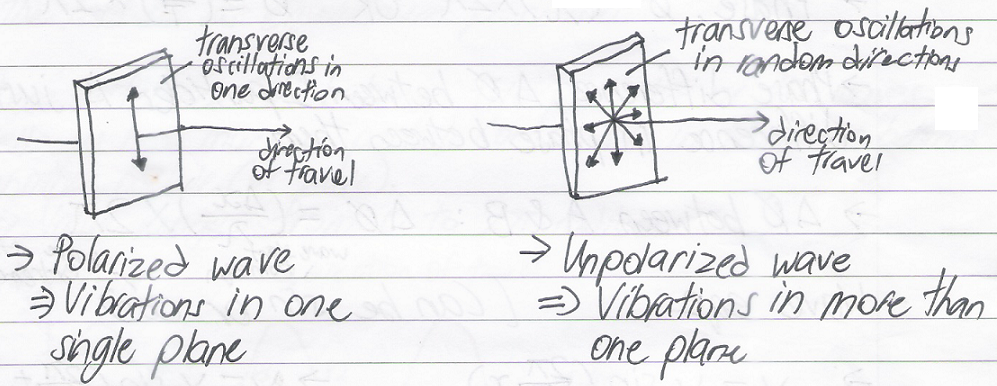 transverse
oscillations in
one direction
direction
of travel
→ Polarized wave
⇒ Vibrations in one
single plane
transverse oscillations
in random directions
direction
of travel
→ Unpolarized wave
⇒ Vibrations in more than
one plane